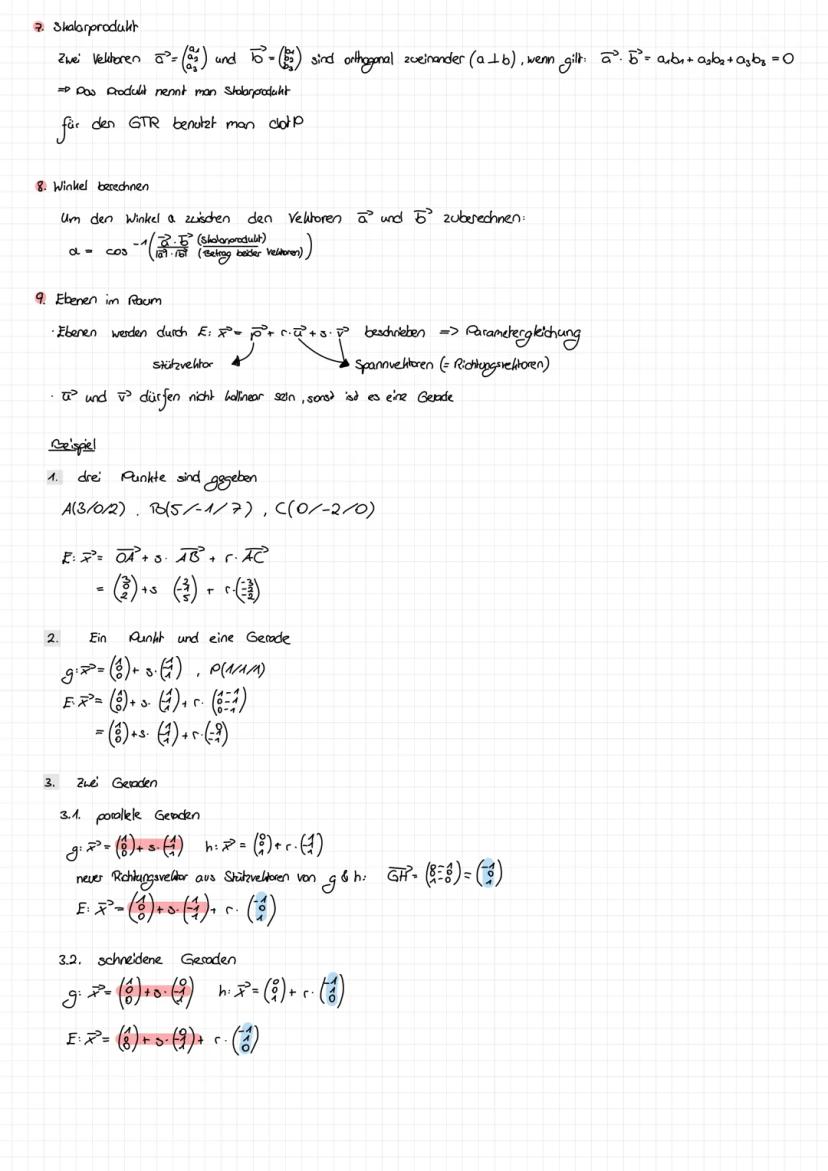 7. Skalarprodukt
Zwei Vektoren a⃗ = (a₁ a₂ a₃) und b⃗ = (b₁ b₂ b₃) sind orthogonal zueinander (a ⊥ b), wenn gilt: a⃗ · b⃗ = a₁b₁ + a₂b₂ + a₃b₃ = 0
=> Das Produkt nennt man Skalarprodukt
für den GTR benutzt man dotP
8. Winkel berechnen
Um den Winkel α zwischen den Vektoren a⃗ und b⃗ zuberechnen:
α = cos⁻¹ ( a⃗ · b⃗ (Skalarprodukt) / |a⃗| · |b⃗| (Betrag beider Vektoren) )
9. Ebenen im Raum
· Ebenen werden durch E: x⃗ = p⃗ + r · u⃗ + s · v⃗ beschrieben => Parametergleichung
Stützvektor Spannvektoren (= Richtungsvektoren)
· u⃗ und v⃗ dürfen nicht kollinear sein, sonst ist es eine Gerade
Beispiel
1. drei Punkte sind gegeben
A(3/0/2), B(5/-1/7), C(0/-2/0)
E: x⃗ = OA⃗ + s · AB⃗ + r · AC⃗
= (3 0 2) + s (2 -1 5) + r · (-3 -2 -2)
2. Ein Punkt und eine Gerade
g: x⃗ = (1 0 0) + s · (1 -1 1), P(1/1/1)
E: x⃗ = (1 0 0) + s · (1 -1 1) + r · (1-1 0-1 0-1)
= (1 0 0) + s · (1 -1 1) + r · (0 -1 -1)
3. Zwei Geraden
3.1. parallele Geraden
g: x⃗ = (1 0 0) + s · (1 -1 1) h: x⃗ = (0 0 1) + r · (1 -1 1)
neuer Richtungsvektor aus Stützvektoren von g & h: GH⃗ = (0-1 0-0 1-0) = (-1 0 1)
E: x⃗ = (1 0 0) + s · (1 -1 1) + r · (-1 0 1)
3.2. schneidene Geraden
g: x⃗ = (1 0 0) + s · (0 -1 1) h: x⃗ = (0 0 1) + r · (-1 1 0)
E: x⃗ = (1 0 0) + s · (0 -1 1) + r · (-1 1 0)